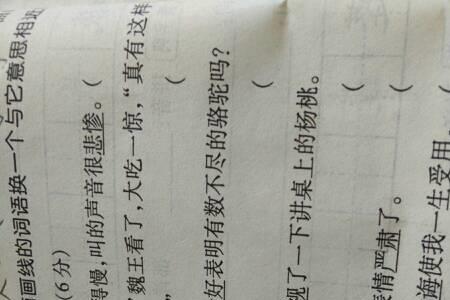 画线的词语换一个与它意思相近
(6分)
得慢,叫的声音很悲惨。(
魏王看了,大吃一惊,“真有这样
”(
好表明有数不尽的骆驼吗?
(
了一下讲桌上的杨桃。
(
情严肃了。(
海使我一生受用。